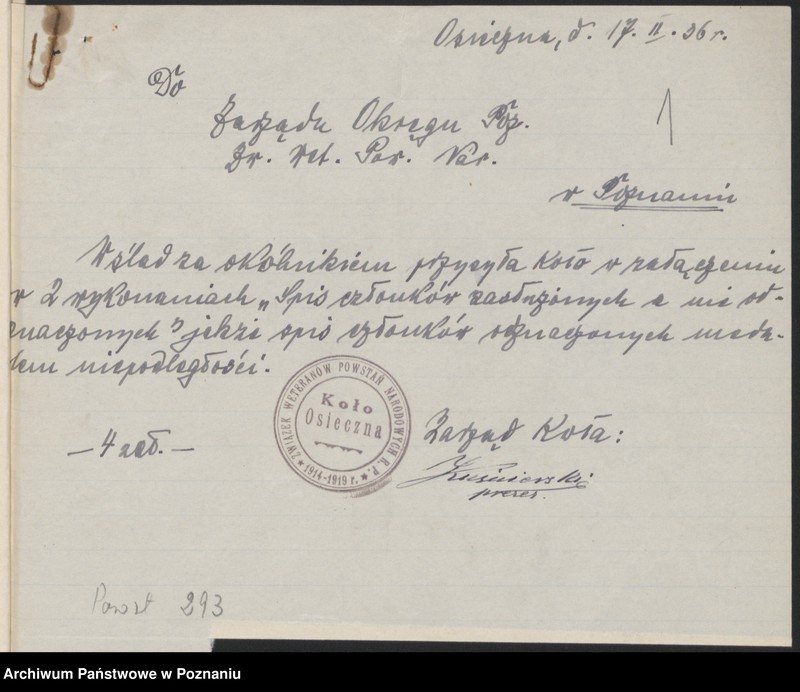 Osieczna, d. 17. II. 36 r.
Do
Zarządu Okręgu Poz.
Zw. Wet. Pow. Nar.
w Poznaniu
W ślad za okólnikiem przysyła Koło w załączeniu
w 2 wykonaniach „Spis członków zasłużonych a nie od-
znaczonych" jakże spis członków odznaczonych meda-
lem niepodległości.
ZWIĄZEK WETERANÓW POWSTAŃ NARODOWYCH R. P.
1914-1919 r.
Koło
Osieczna
— 4 zał. —
Zarząd Koła:
Kuśnierski
prezes.
293
Archiwum Państwowe w Poznaniu